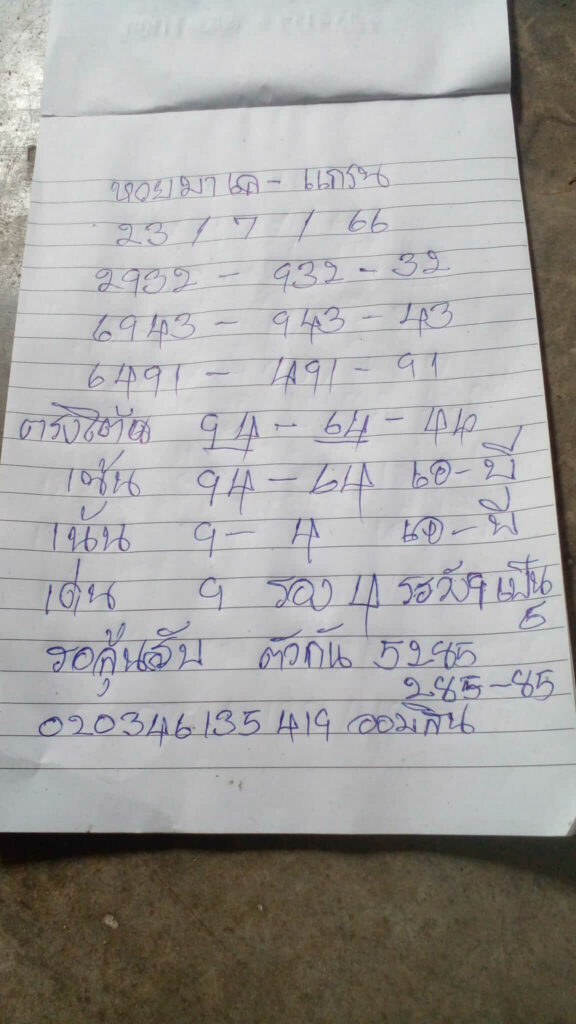 หวยมาเก - แกรน
23 / 7 / 66
2932 - 932 - 32
6943 - 943 - 43
6491 - 491 - 91
94 - 64 - 44
เซ้น 94 - 64 เอ-บี
เน้น 9 - 4 เอ-บี
เด่น 9 รอง 4 ระวัง 9 เป็น
5
รอลุ้นลับ ตัวกัน 5285
285-85
020346135419 ออมสิน